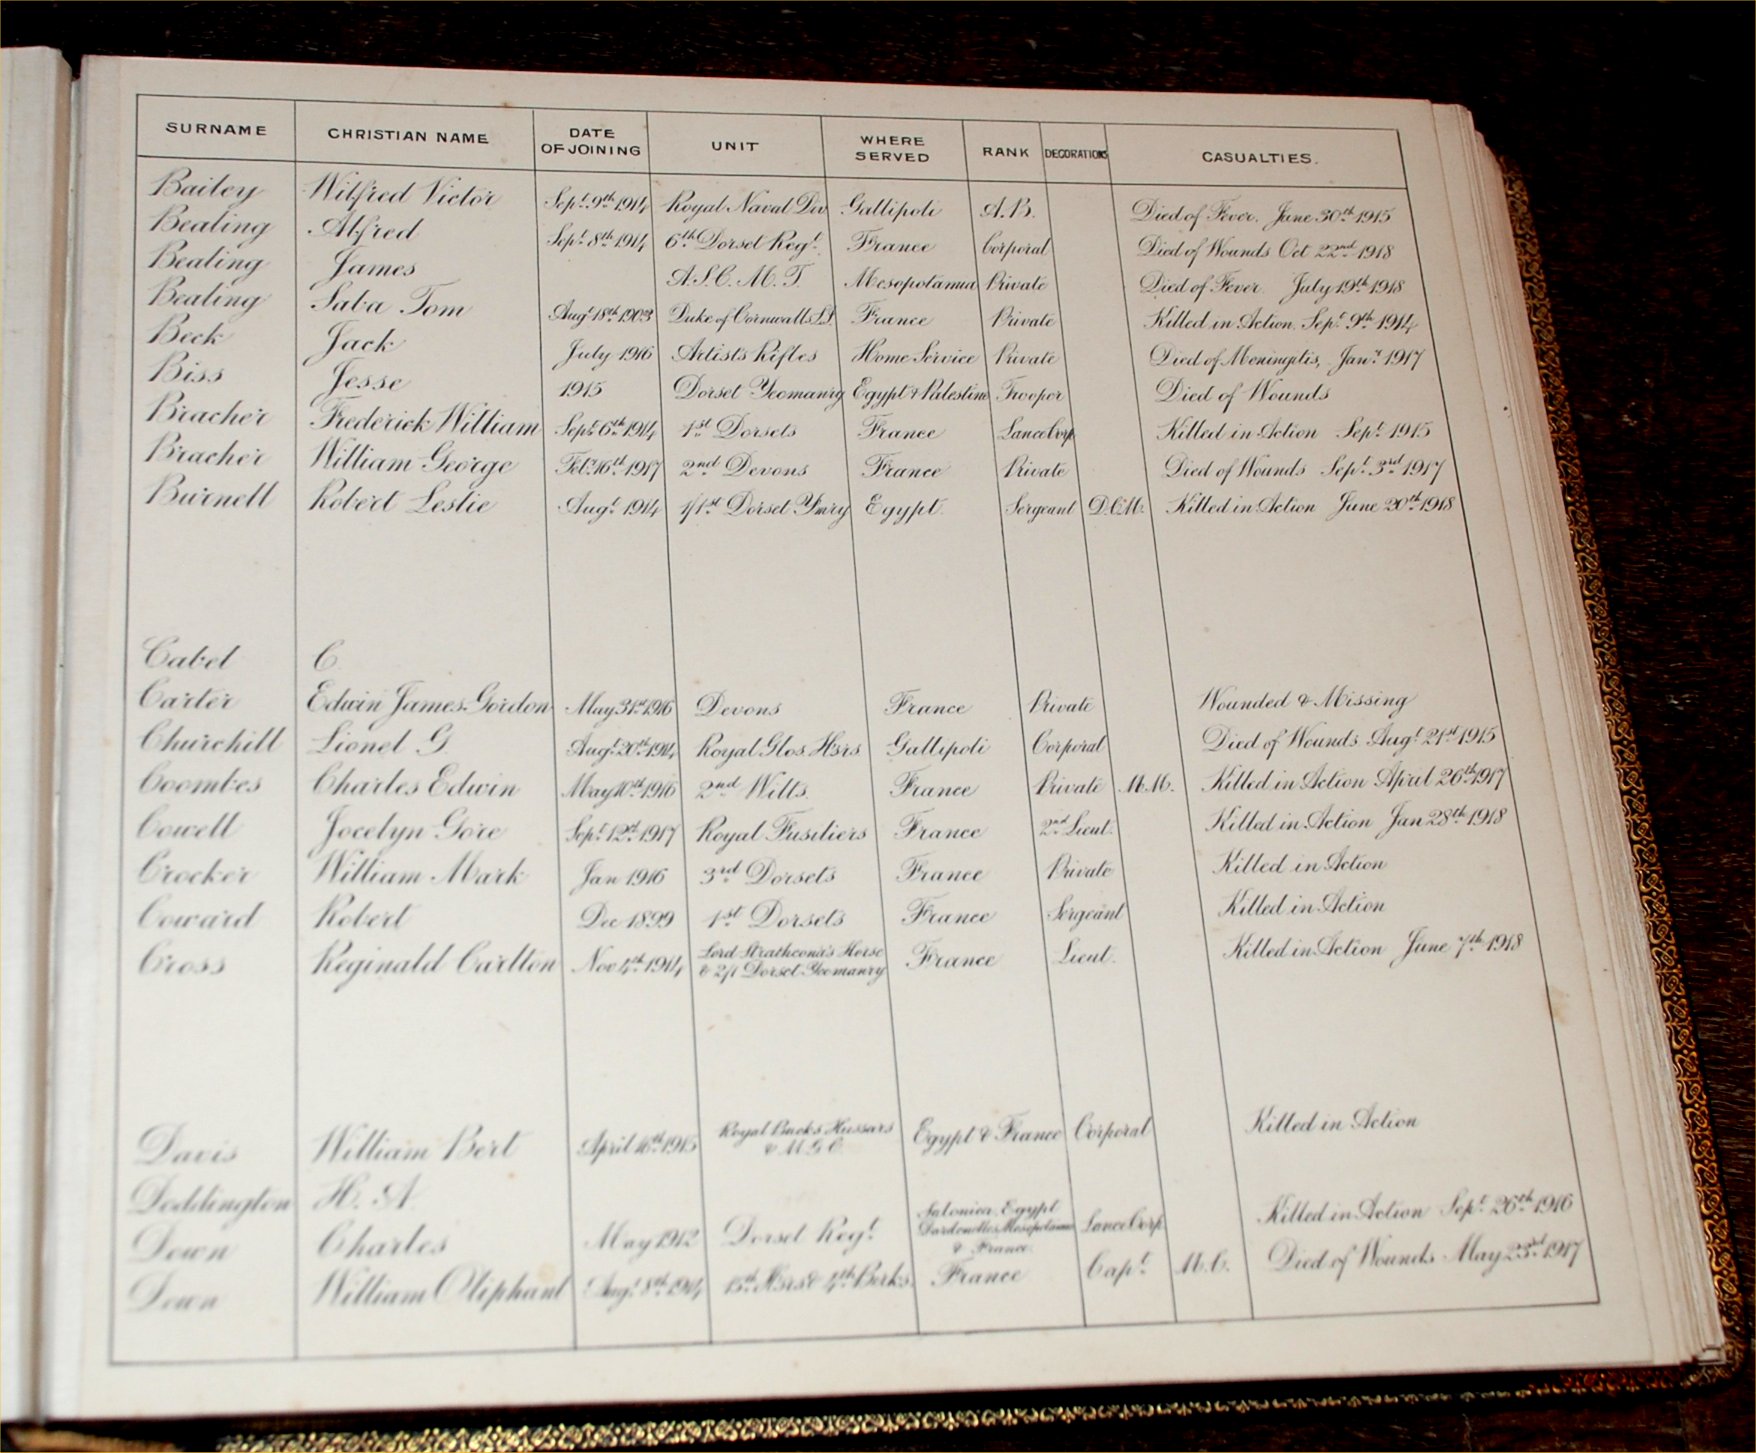 SURNAME CHRISTIAN NAME DATE OF JOINING UNIT WHERE SERVED RANK DECORATIONS CASUALTIES.
Bailey Wilfred Victor Sept. 9th 1914 Royal Naval Div Gallipoli A.B. Died of Fever. June 30th 1915
Bealing Alfred Sept. 8th 1914 6th Dorset Regt. France Corporal Died of Wounds Oct 22nd 1918
Bealing James A.S.C. M.T. Mesopotamia Private Died of Fever. July 19th 1918
Bealing Saba Tom Augt. 18th 1903 Duke of Cornwalls L.I. France Private Killed in Action. Sept. 9th 1914
Beck Jack July 1916 Artists Rifles Home Service Private Died of Meningitis, Jany. 1917
Biss Jesse 1915 Dorset Yeomanry Egypt & Palestine Trooper Died of Wounds
Bracher Frederick William Sept. 6th 1914 1st Dorsets France Lance Corp Killed in Action Sept. 1915
Bracher William George Feb. 16th 1917 2nd Devons France Private Died of Wounds Sept. 3rd 1917
Burnell Robert Leslie Augt. 1914 1/1st Dorset Ymry Egypt. Sergeant D.C.M. Killed in Action June 20th 1918
Cabel C
Carter Edwin James Gordon May 31st 1916 Devons France Private Wounded & Missing
Churchill Lionel G. Augt. 20th 1914 Royal Glos. Hsrs Gallipoli Corporal Died of Wounds Augt. 21st 1915
Coombes Charles Edwin May 10th 1916 2nd Wilts. France Private M.M. Killed in Action April 26th 1917
Cowell Jocelyn Gore Sept. 1917 Royal Fusiliers France 2nd Lieut. Killed in Action Jan 28th 1918
Crocker William Mark Jan 1916 3rd Dorsets France Private Killed in Action
Coward Robert Dec 1899 1st Dorsets France Sergeant Killed in Action
Cross Reginald Carlton Nov. 4th 1914 Lord Strathcona's Horse & 2/1 Dorset Yeomanry France Lieut. Killed in Action June 7th 1918
Davis William Bert April 16th 1915 Royal Bucks Hussars & M.G.C. Egypt & France Corporal Killed in Action
Doddington H. A.
Down Charles May 1912 Dorset Regt. Salonica, Egypt Dardanelles, Mesopotamia & France Lance Corp. Killed in Action Sept. 26th 1916
Down William Oliphant Augt. 8th 1914 15th Hsrs & 4th Berks. France Capt. M.C. Died of Wounds May 23rd 1917